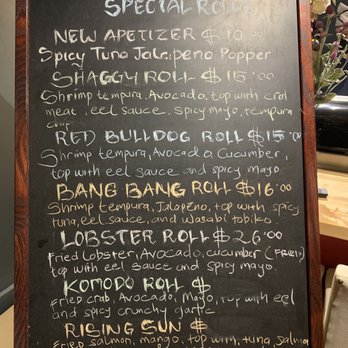 SPECIAL ROLL
NEW APETIZER $10.00
Spicy Tuna Jalapeno Popper
SHAGGY ROLL $15.00
Shrimp tempura, Avocado, top with crab
meat, eel sauce, spicy mayo, tempura
RED BULLDOG ROLL $15.00
Shrimp tempura, Avocado, Cucumber,
top with eel and spicy mayo
BANG BANG ROLL $16.00
Shrimp tempura, Jalapeno, top with spicy
tuna, eel sauce, and wasabi tobiko.
LOBSTER ROLL $26.00
Fried Lobster, Avocado, cucumber (FRIED)
top with eel sauce and spicy mayo
KOMODO ROLL $
Fried crab, Avocado, Mayo, top with eel
and spicy crunchy garlic
RISING SUN $
Fried salmon, mango, top with, tuna salmon